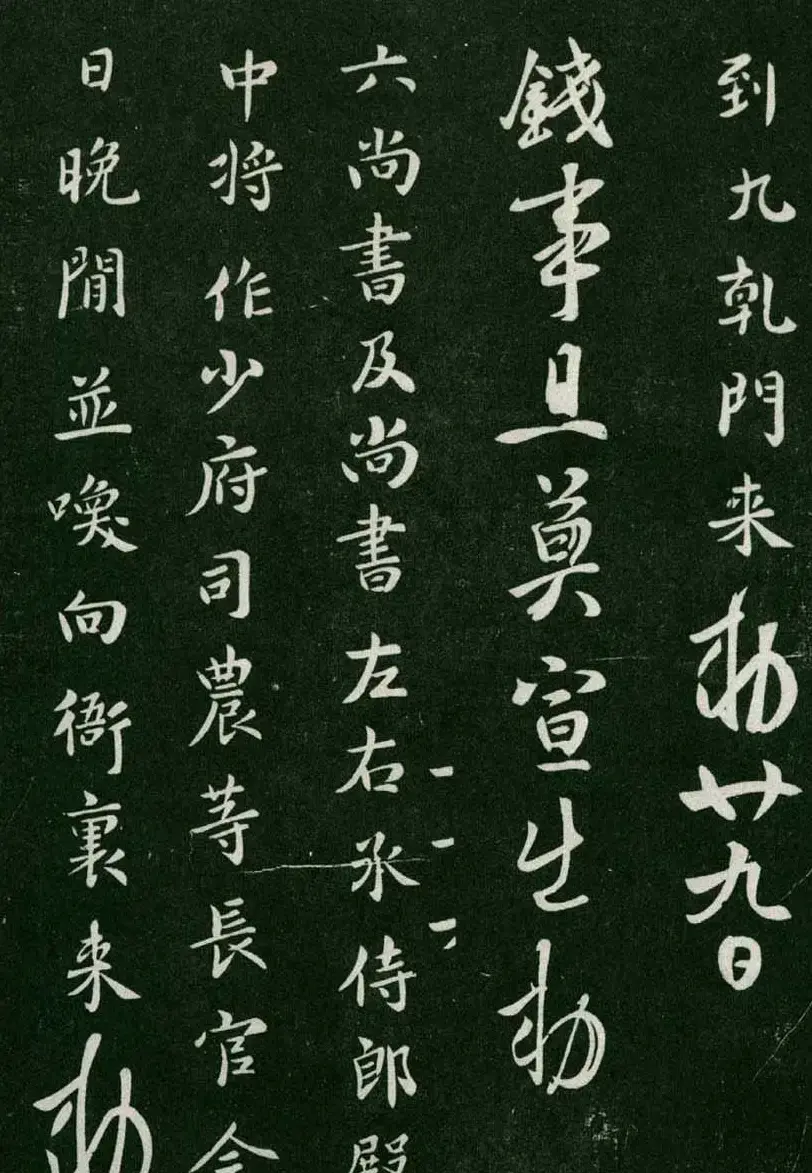 到九乹門来勑廿九日
錢事且莫宣生勑
六尚書及尚書左右丞侍郎殿
中将作少府司農等長官今
日晚閒並喚向衙裏来勑